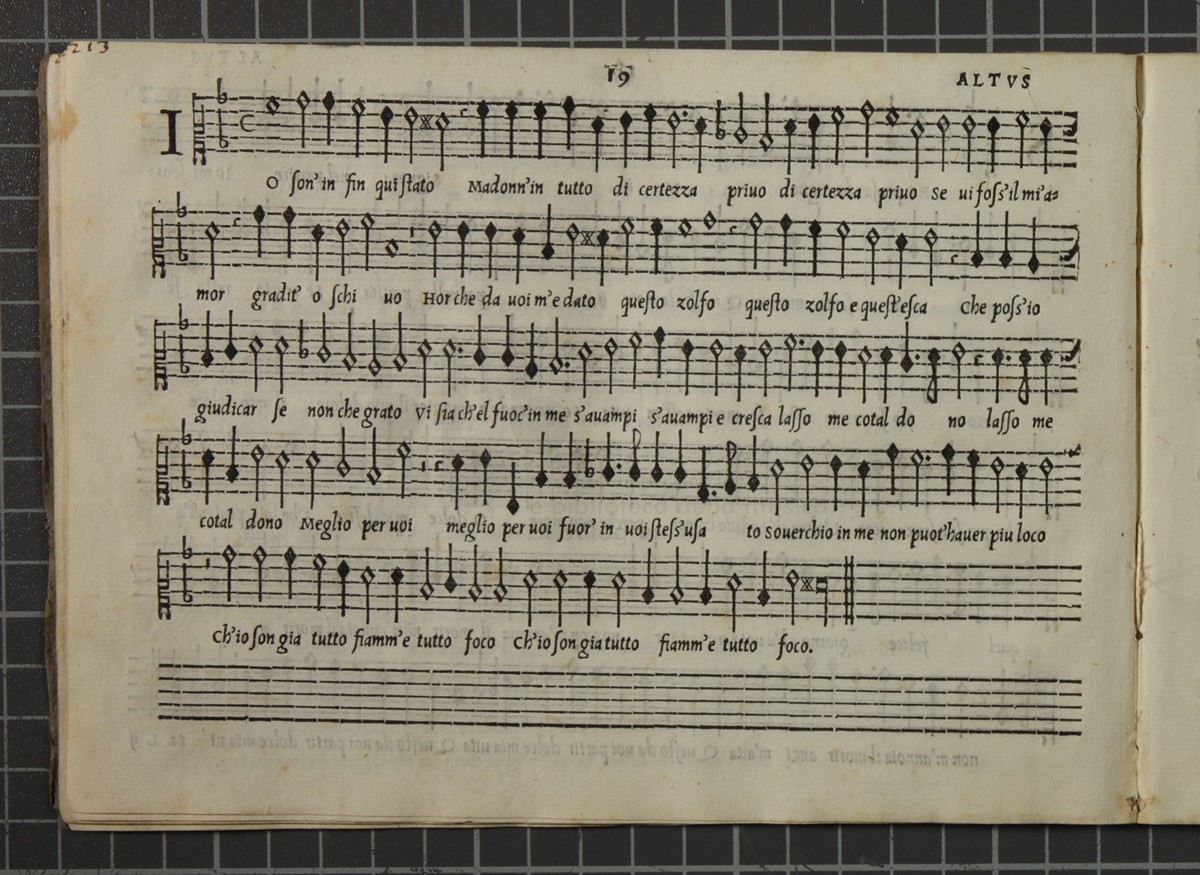 2213
19
ALTVS
IO son' in fin qui stato Madonn'in tutto di certezza priuo di certezza priuo se ui foss'il mi'a=
mor gradit' o schi uo Hor che da uoi m'e dato questo zolfo questo zolfo e quest'esca Che poss'io
giudicar se non che grato Vi sia ch'el fuoc'in me s'auampi s'auampi e cresca lasso me cotal do no lasso me
cotal dono Meglio per uoi meglio per uoi fuor' in uoi stess'usa to souerchio in me non puot'hauer piu loco
Ch'io son gia tutto fiamm'e tutto foco Ch'io son gia tutto fiamm'e tutto foco.